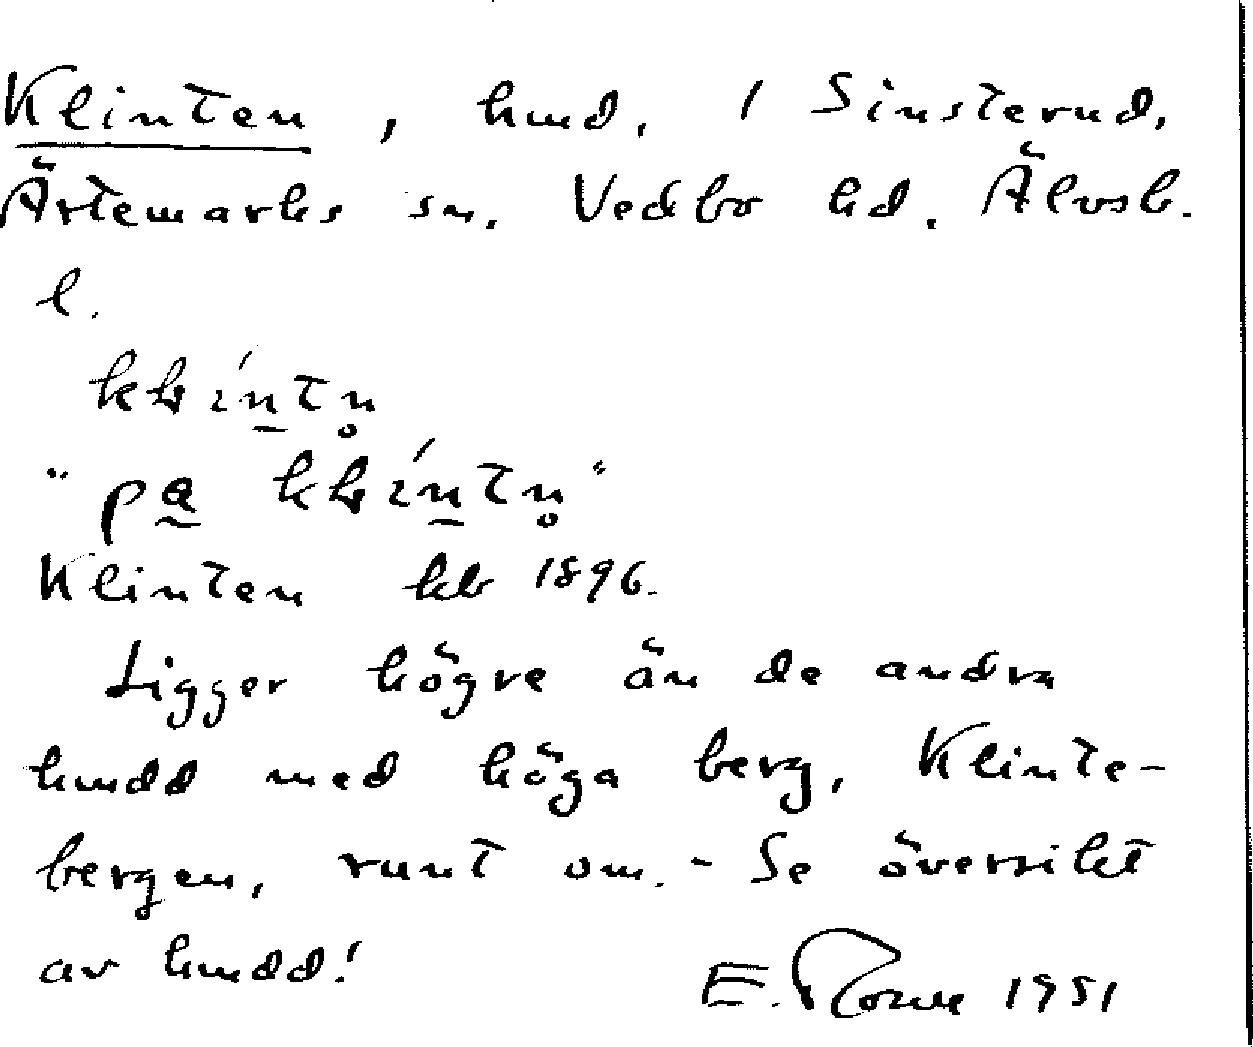 Klinten, hmd. / Sinsterud,
Ärtemarks sn. Vedbo hd. Älvsb.
l.
"på
Klinten kb 1896.
Ligger högre än de andra
hmdd med höga berg, Klinte-
bergen, runt om. - Se översikt
av hmdd!
E. 1951